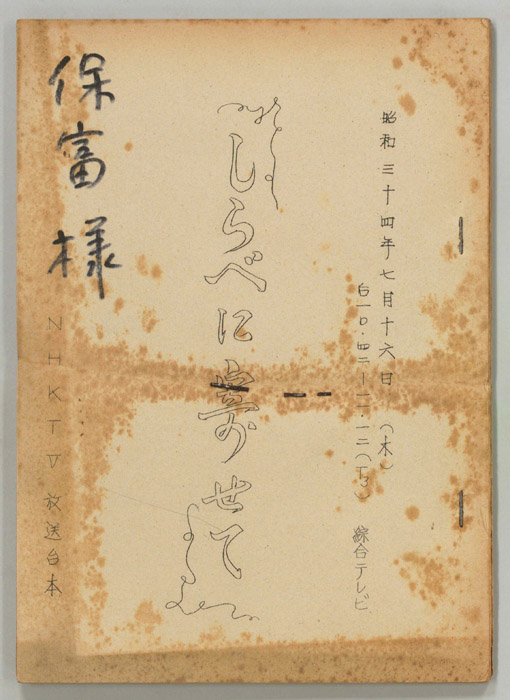 昭和三十四年七月十六日(木)
自一〇・四二―一一・一二(T3) 綜合テレビ
しらべに寄せて
保富様
NHKTV放送台本